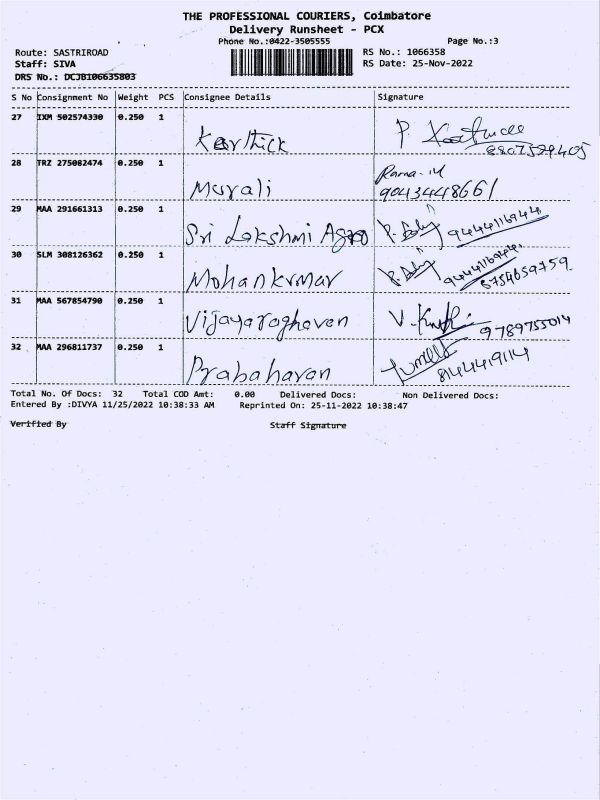 THE PROFESSIONAL COURIERS, Coimbatore
Delivery Runsheet - PCX
Phone No.:0422-3505555 Page No.:3
Route: SASTRIROAD RS No.: 1066358
Staff: SIVA RS Date: 25-Nov-2022
DRS No.: DCJB106635803
S No Consignment No Weight PCS Consignee Details Signature
27 IXM 502574330 0.250 1 Karthick P.
8807529405
28 TRZ 275082474 0.250 1 Murali Rama
9043448661
29 MAA 291661313 0.250 1 Sri Lakshmi Agro 9444116944
30 SLM 308126362 0.250 1 Mohankumar 9444116944
8754659759
31 MAA 567854790 0.250 1 Vijayaraghavan V. 9789755014
32 MAA 296811737 0.250 1 Prabaharan 8144419114
Total No. Of Docs: 32 Total COD Amt: 0.00 Delivered Docs: Non Delivered Docs:
Entered By :DIVYA 11/25/2022 10:38:33 AM Reprinted On: 25-11-2022 10:38:47
Verified By Staff Signature